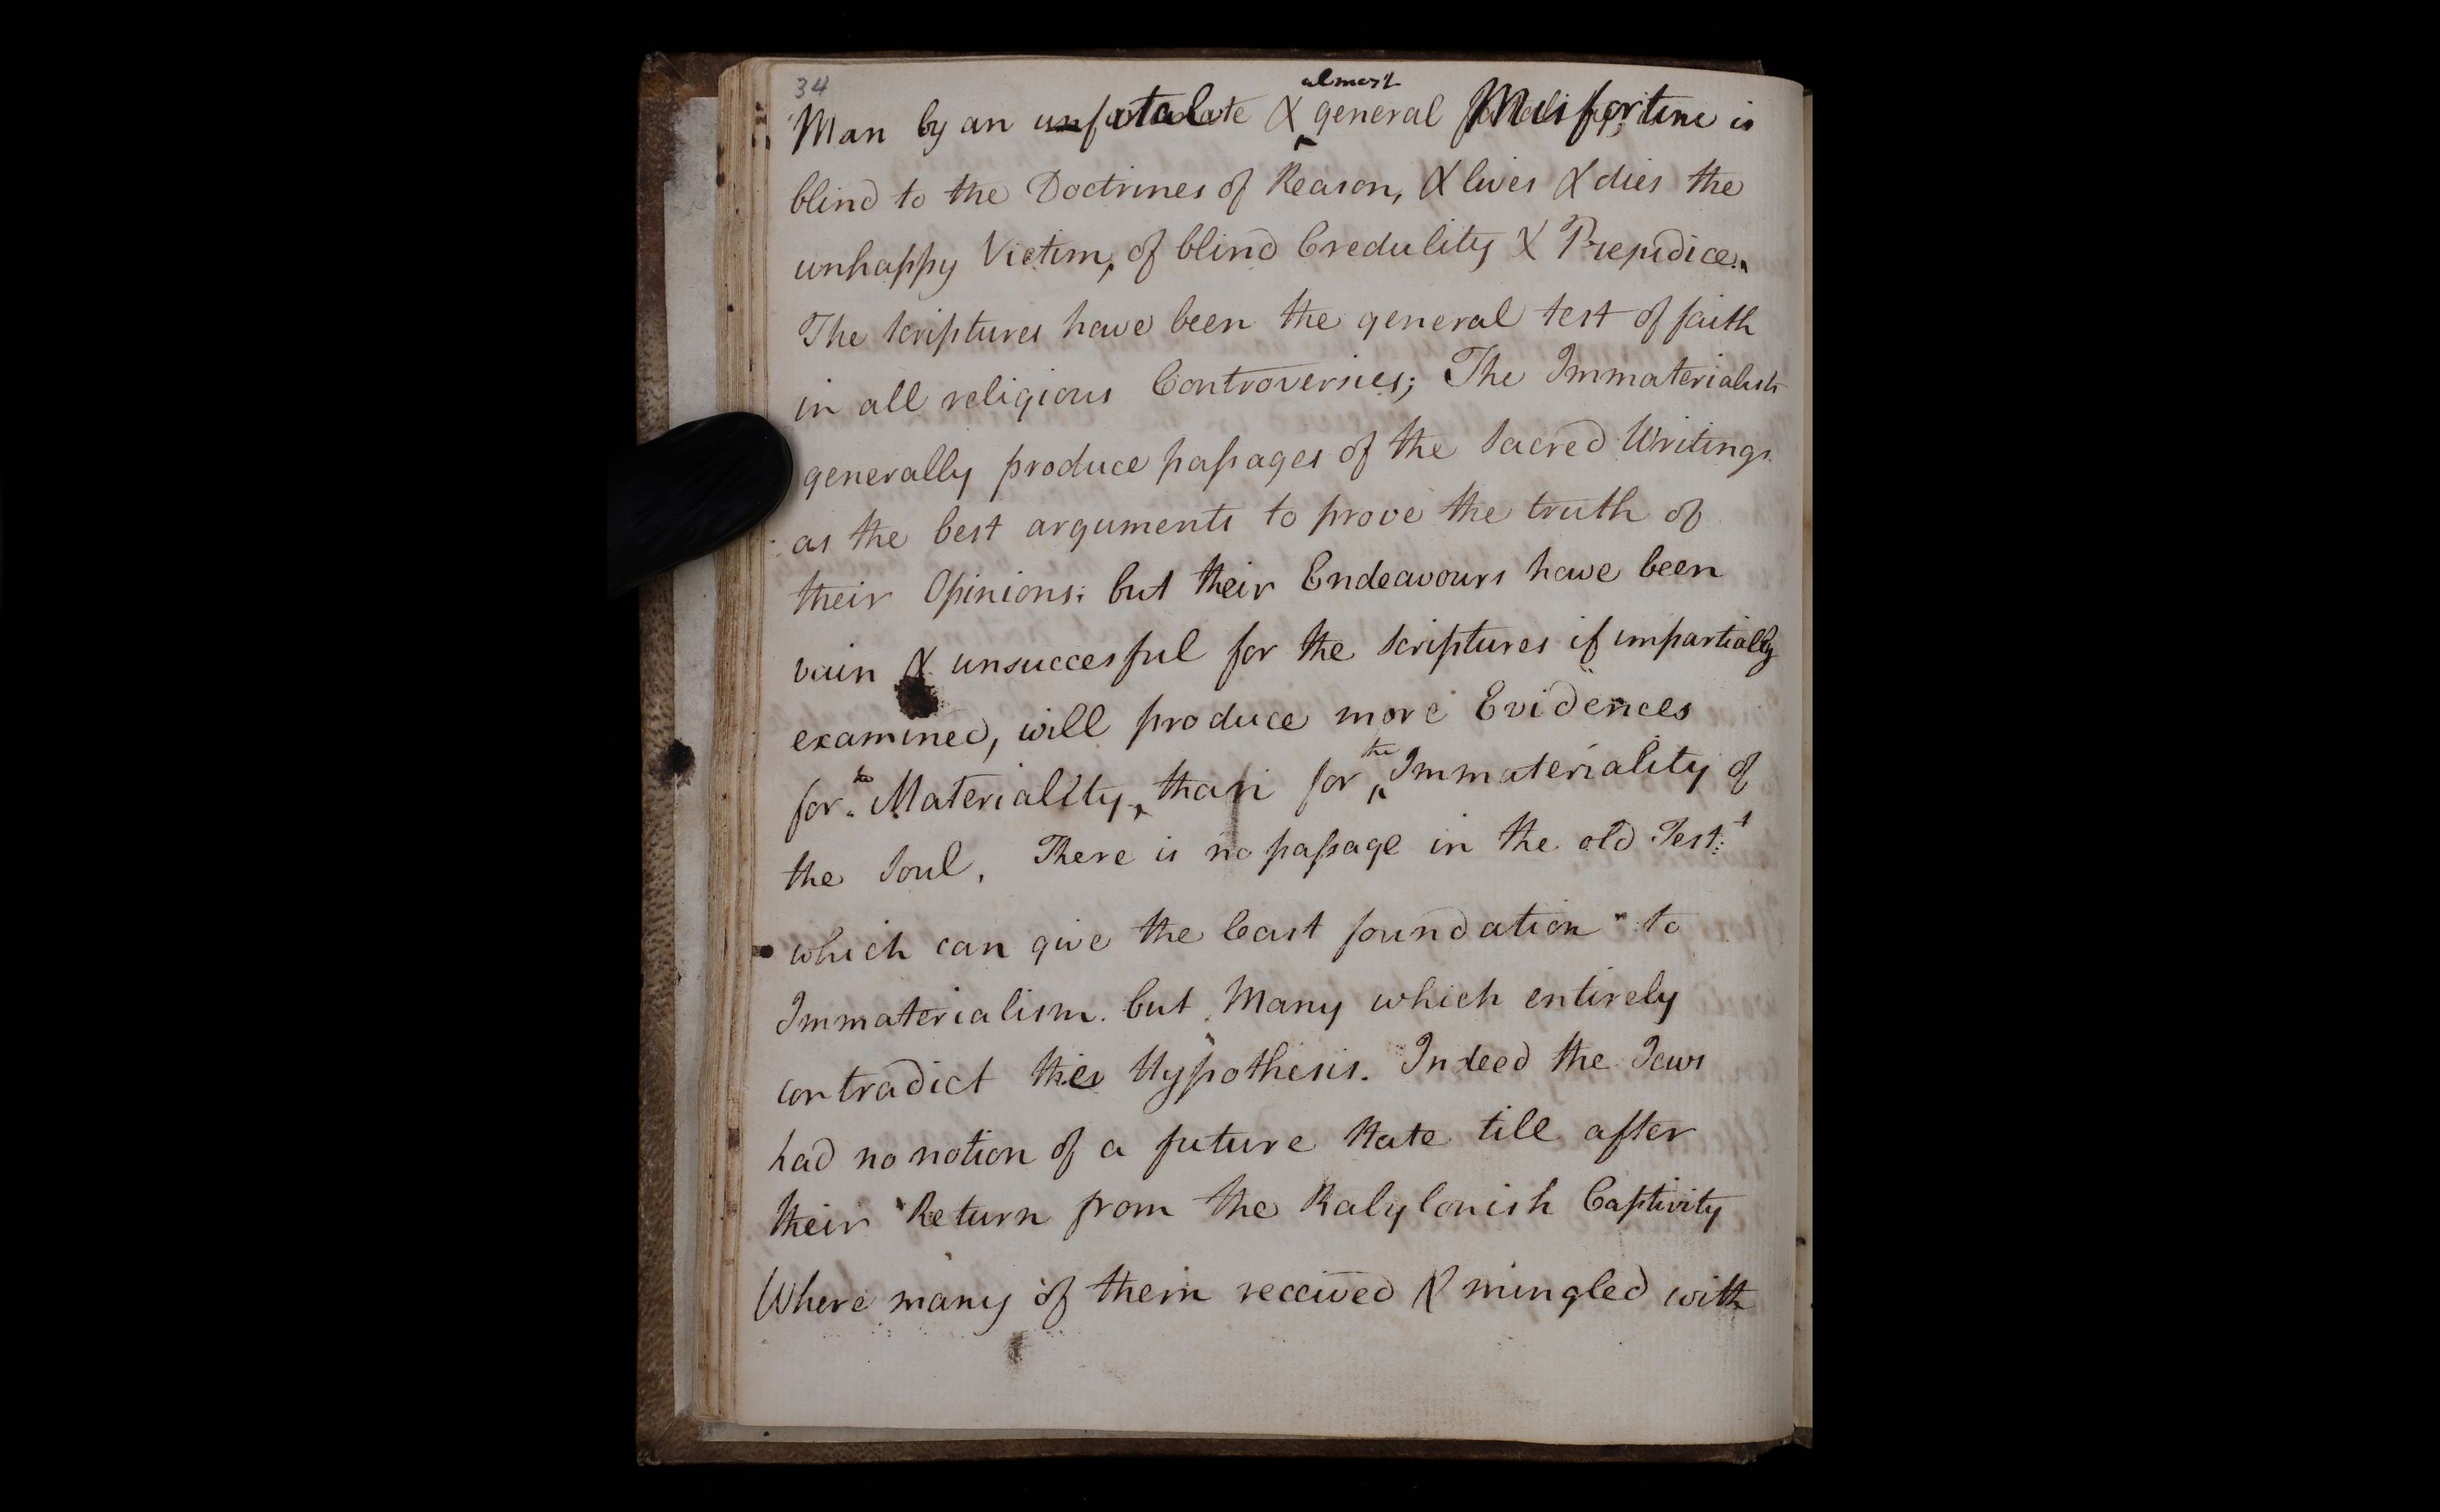 34
almost
Man by an unfatal & general Misfortune is
blind to the Doctrines of Reason, & lives & dies the
unhappy Victim, of blind Credulity & Prejudice.
The Scriptures have been the general test of faith
in all religious Controversies; The Immaterialists
generally produce passages of the Sacred Writings
as the best arguments to prove the truth of
their Opinions; but their Endeavours have been
vain & unsuccesful for the Scriptures if impartially
examined, will produce more Evidences
for the Materiality, than for the Immateriality of
the Soul. There is no passage in the old Test.t
which can give the least foundation to
Immaterialism. but Many which entirely
contradict this Hypothesis. Indeed the Jews
had no notion of a future State till after
their Return from the Babylonish Captivity
Where many of them received & mingled with